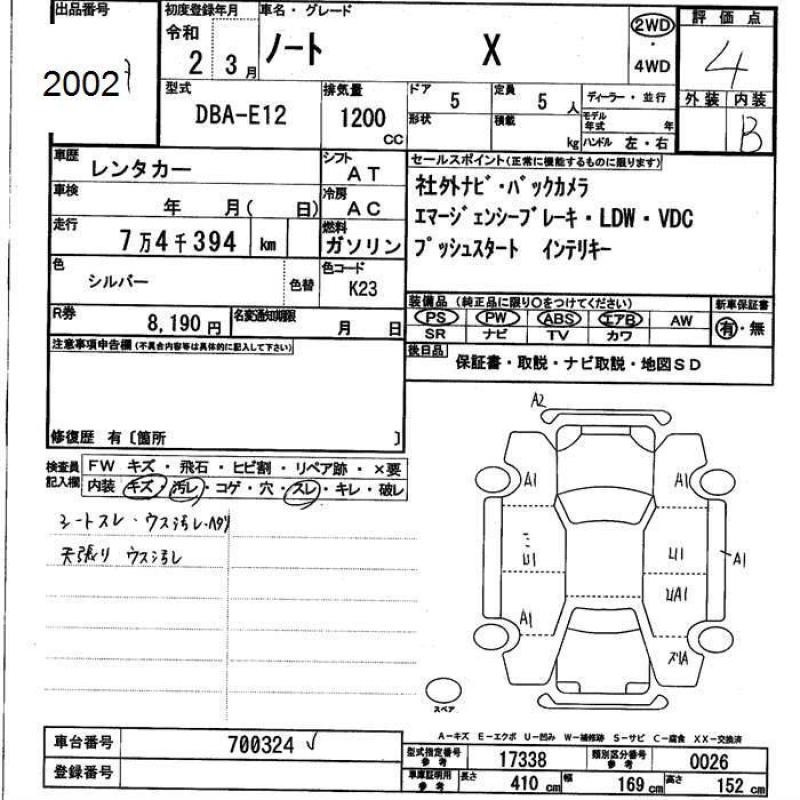 出品番号
2002
初度登録年月
令和
2 3月
車名・グレード
ノート X
2WD
・
4WD
評価点
4
外装 内装
B
型式
DBA-E12
排気量
1200
CC
ドア 5
形状
定員 5 人
積載 kg
ディーラー・並行
モデル年式 年
ハンドル 左・右
車歴
レンタカー
シフト
AT
車検
年 月( 日)
冷房
AC
走行
7万4千394 km
燃料
ガソリン
色
シルバー
色替
色コード
K23
R券
8,190 円
名変通知期限
月 日
セールスポイント(正常に機能するものに限ります)
社外ナビ・バックカメラ
エマージェンシーブレーキ・LDW・VDC
プッシュスタート インテリキー
装備品(純正品に限り○をつけてください)
新車保証書
PS PW ABS エアB AW
SR ナビ TV カワ
有・無
後日品
保証書・取説・ナビ取説・地図SD
注意事項申告欄(不具合内容等は具体的に記入して下さい)
修復歴 有〔箇所 〕
検査員
記入欄
FW キズ・飛石・ヒビ割・リペア跡・×要
内装 キズ・汚レ・コゲ・穴・スレ・キレ・破レ
シートスレ・ウス汚レ・ヘタリ
天張り ウス汚レ
A2
A1
A1
U1
U1
A1
UA1
A1
スペア
A-キズ E-エクボ U-凹み W-補修跡 S-サビ C-腐食 XX-交換済
車台番号
700324
登録番号
型式指定番号
参考
17338
類別区分番号
参考
0026
車庫証明用
参考
長さ 410 cm
幅 169 cm
高さ 152 cm